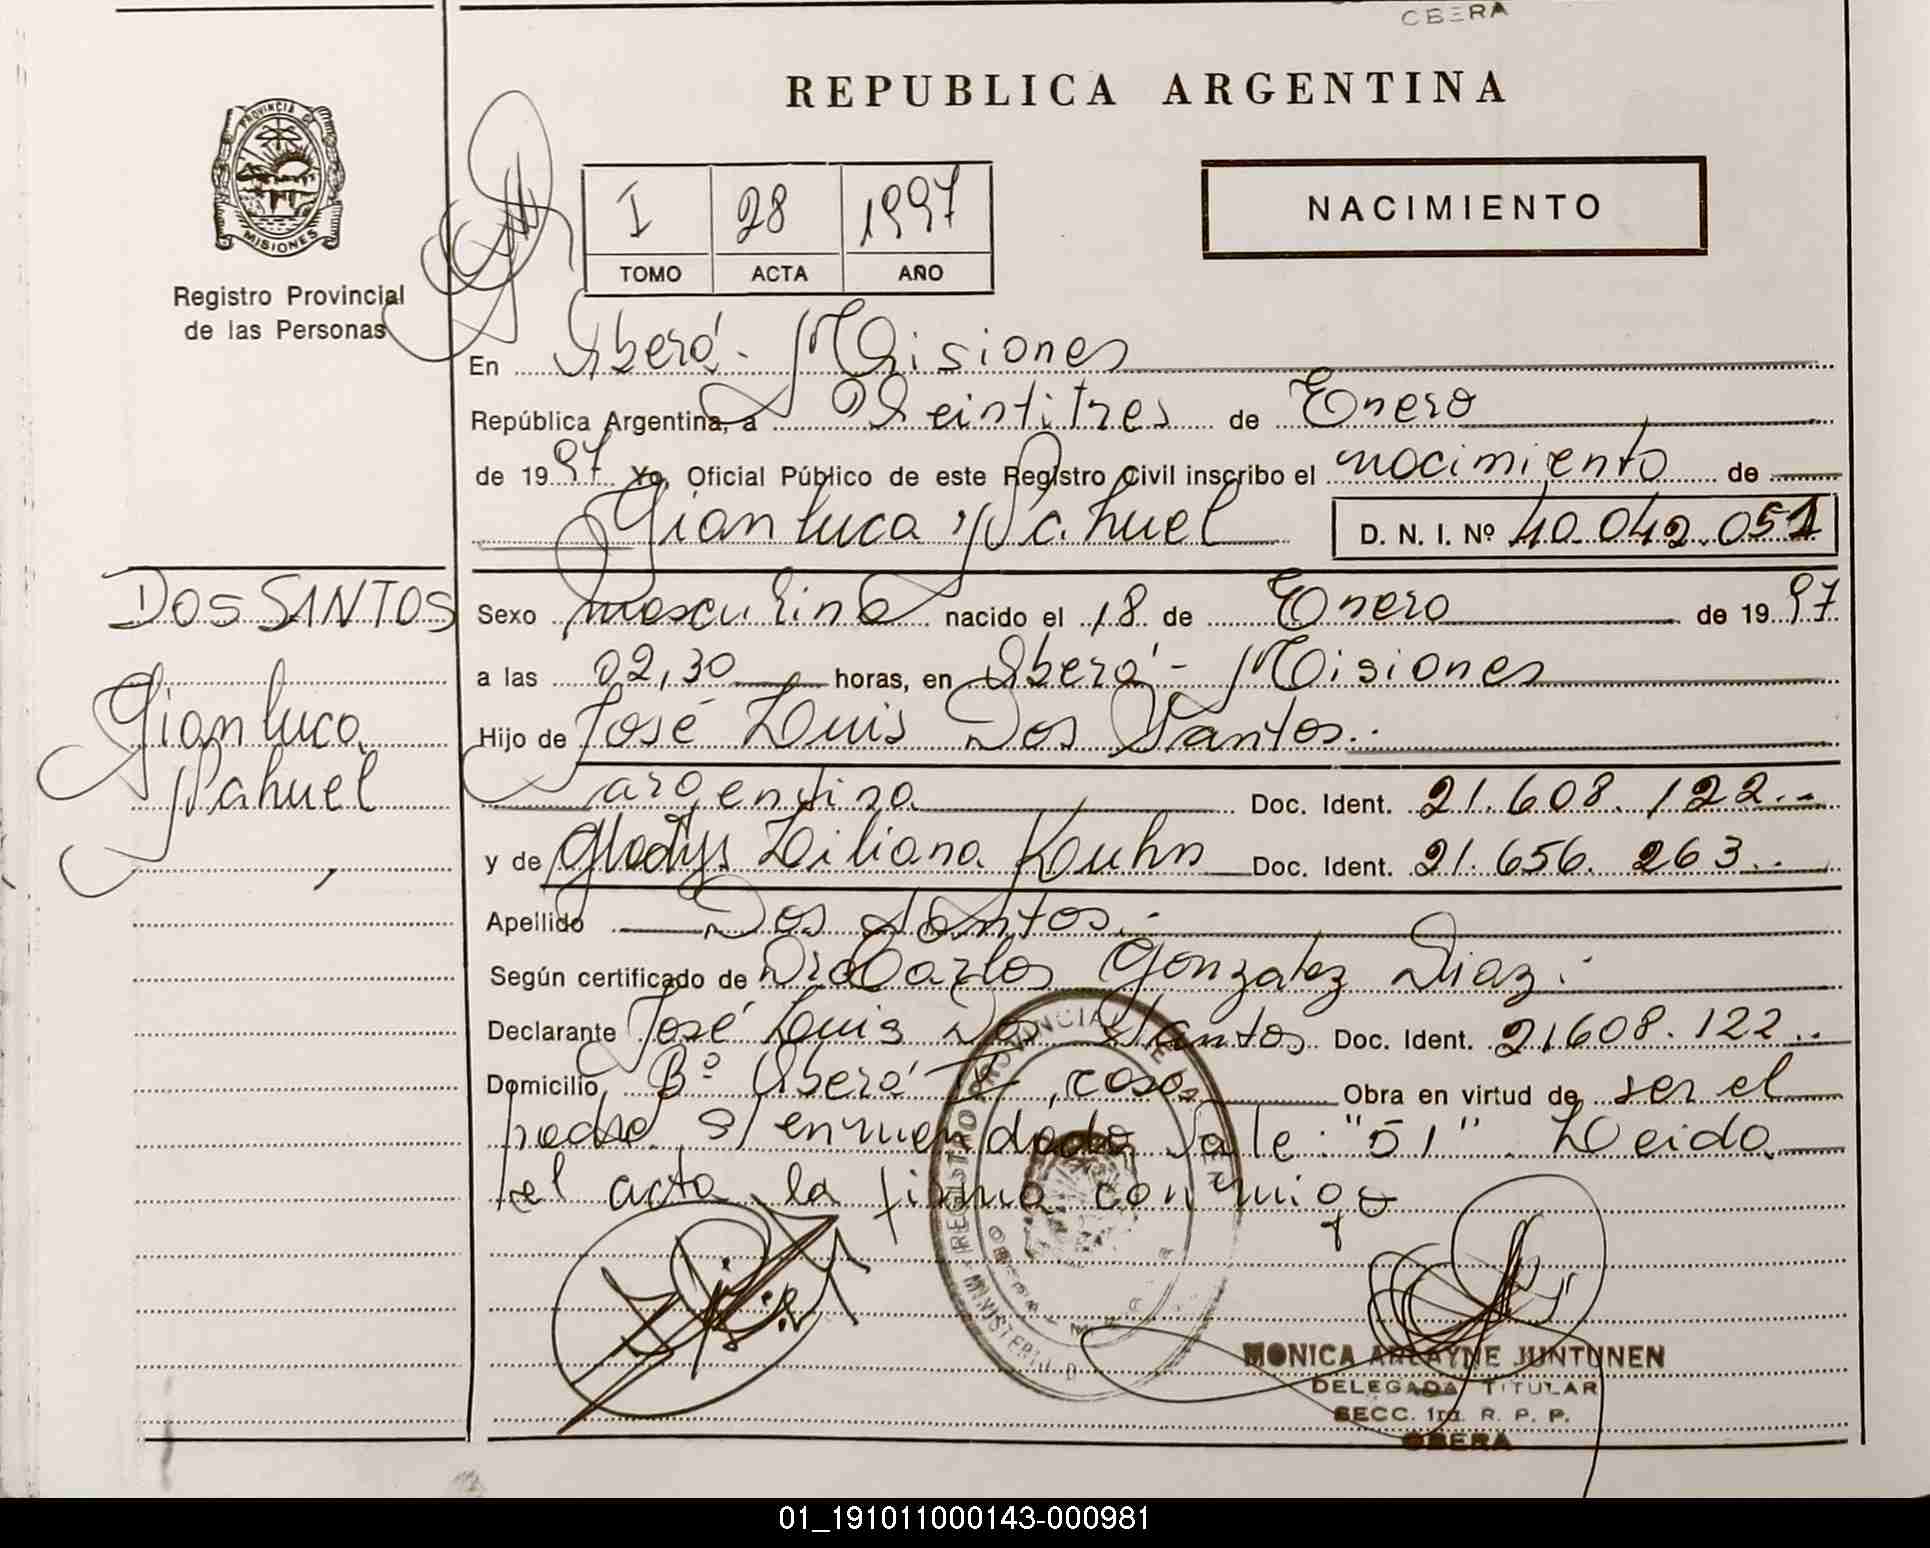 OBERA
REPUBLICA ARGENTINA
PROVINCIA DE
MISIONES
Registro Provincial
de las Personas
I 28 1997
TOMO ACTA AÑO
NACIMIENTO
En Oberá - Misiones
República Argentina, a Veintitres de Enero
de 1997 Yo, Oficial Público de este Registro Civil inscribo el nacimiento de
Gianluca Nahuel D. N. I. Nº 40.042.051
DOS SANTOS
Gianluca
Nahuel
Sexo masculino nacido el 18 de Enero de 1997
a las 02,30 horas, en Oberá - Misiones
Hijo de José Luis Dos Santos.-
argentina Doc. Ident. 21.608.122.-
y de Gladys Liliana Kuhn Doc. Ident. 21.656.263.-
Apellido Dos Santos.-
Según certificado de Dr Carlos Gonzalez Diaz.-
Declarante José Luis Dos Santos Doc. Ident. 21608.122.-
Domicilio Bº Oberá II, casa Obra en virtud de ser el
padre s/ enmendado Vale: "51" Leida
el acta la firma conmigo
REGISTRO PROVINCIAL DE
MINISTERIO D
MONICA ARLAYNE JUNTUNEN
DELEGADA TITULAR
SECC. 1ra. R. P. P.
OBERA
01_191011000143-000981